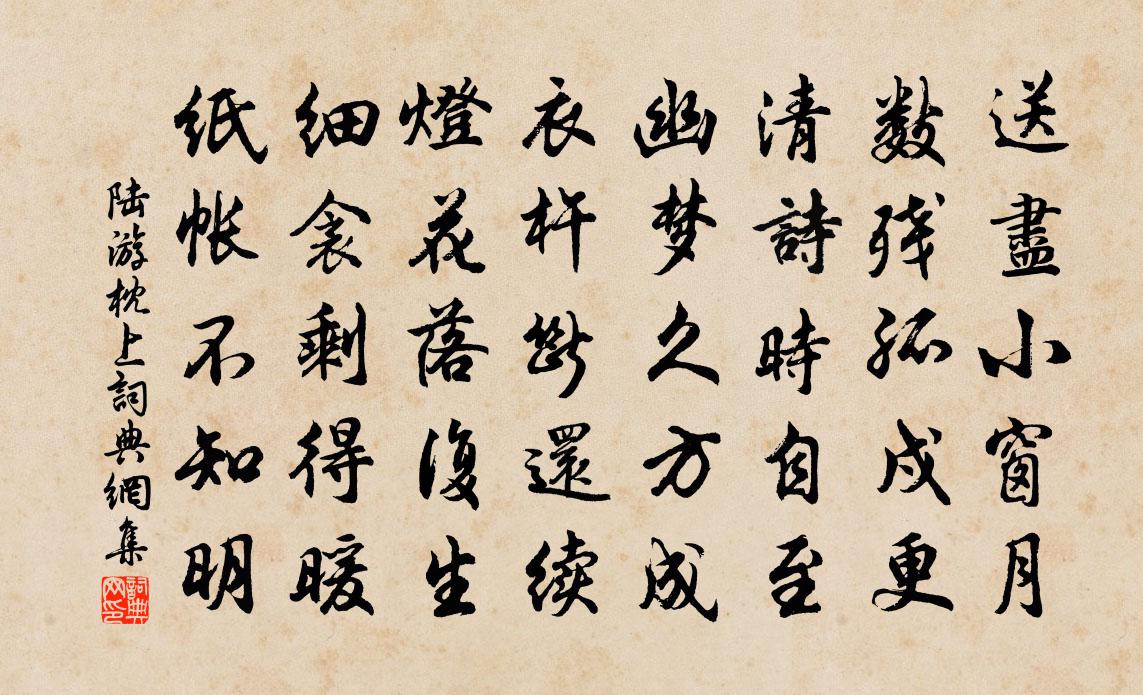 送盡小窗月
數残孤戍更
清詩時自至
幽梦久方成
衣杵斷還续
燈花落復生
細衾剩得暖
紙帳不知明
陆游枕上詞典網集
詞典网印